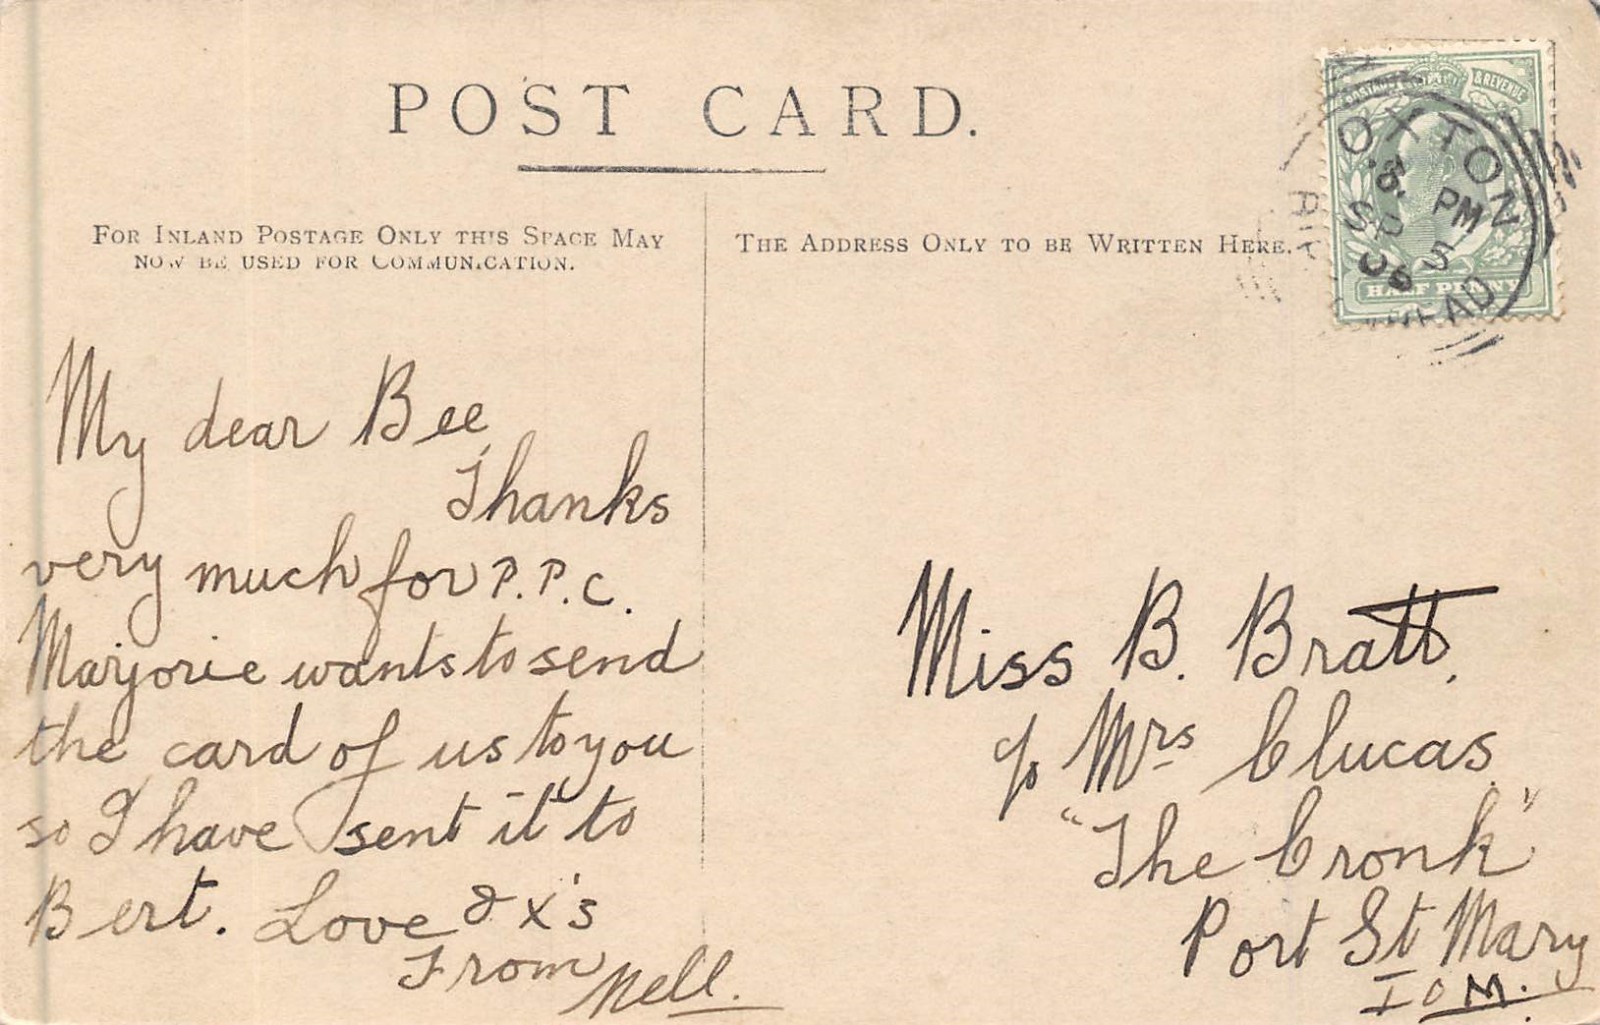 POST CARD.
FOR INLAND POSTAGE ONLY THIS SPACE MAY
NOW BE USED FOR COMMUNICATION.
THE ADDRESS ONLY TO BE WRITTEN HERE.
POSTAGE & REVENUE
HALF PENNY
OXTON
8. PM
SP 5
06
My dear Bee,
Thanks
very much for P.P.C.
Marjorie wants to send
the card of us to you
so I have sent it to
Bert. Love & x's
From Nell.
Miss B. Bratt.
c/o Mrs Clucas
"The Cronk"
Port St Mary
I O M.